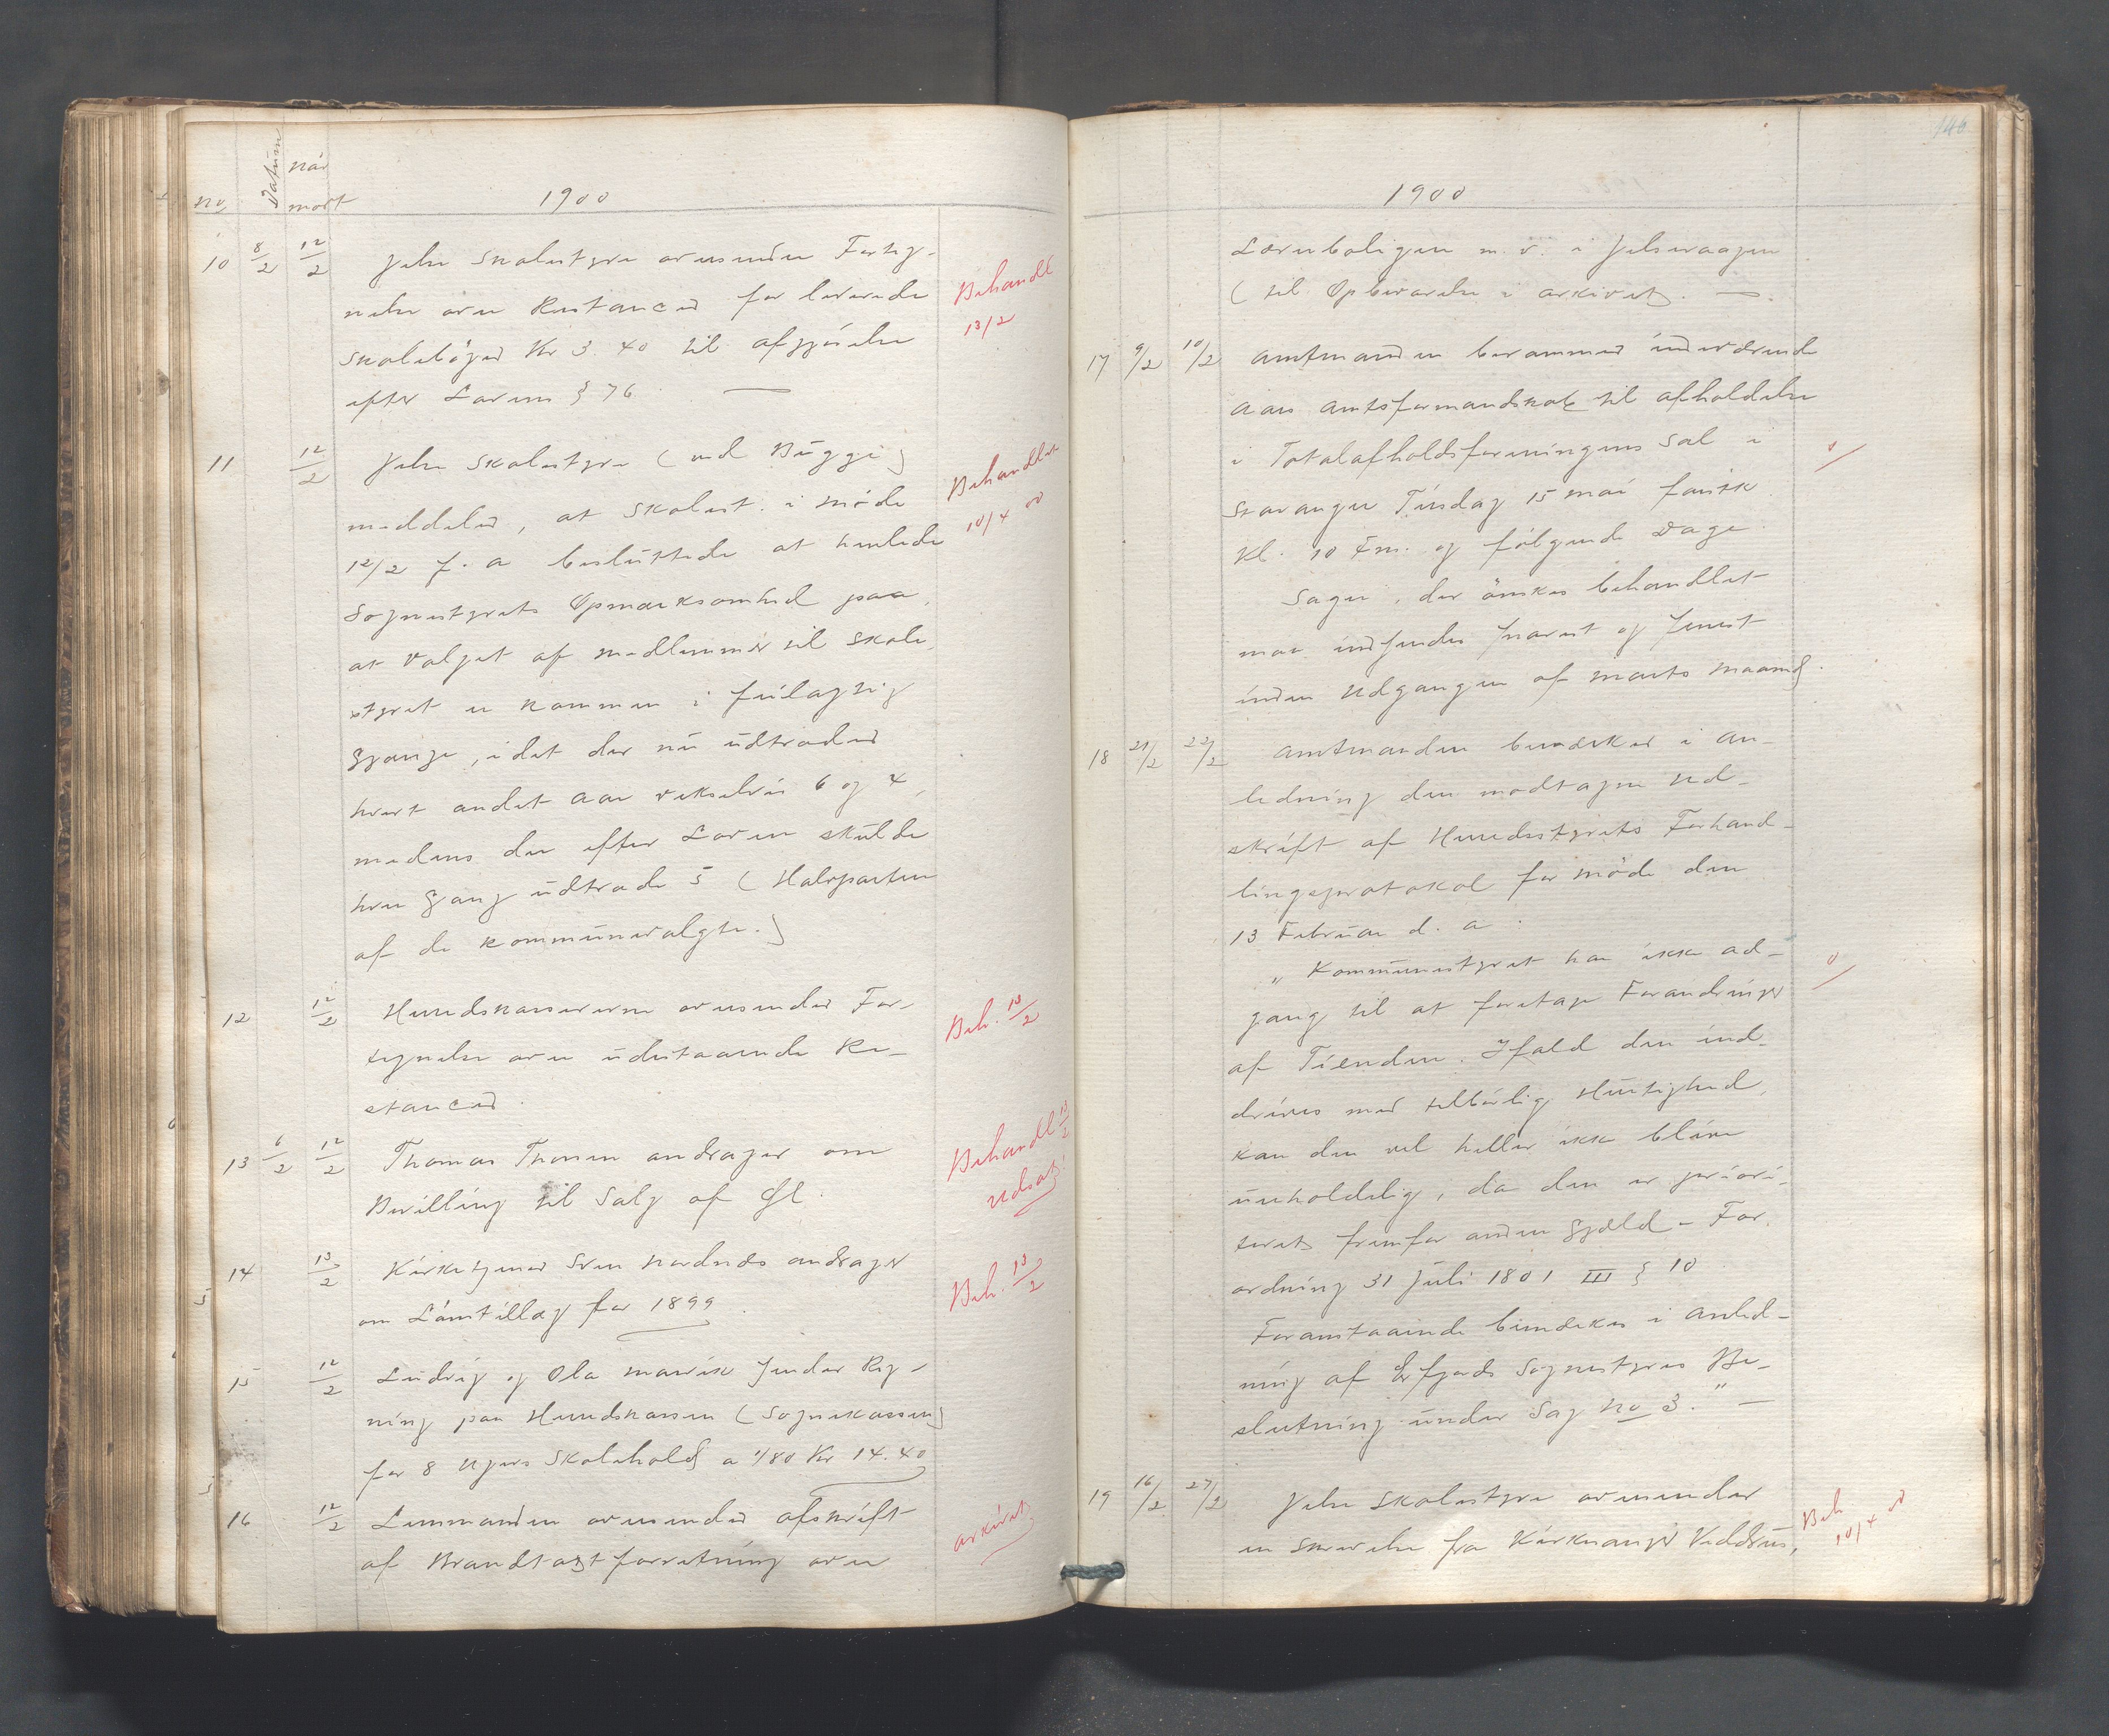 1900
No Datum Når mott
10 8/2 12/2 Jelse Skolestyre oversender Forteg-
nelse over Restancer for leverede
Skolebøger Kr 3.40 til afgjørelse
efter Lovens § 76 —
Behandl 13/2
11 12/2 Jelse Skolestyre (ved Bügge)
meddeler, at Skolest. i møde
12/2 f. a besluttede at henlede
Sognestyrets Opmærksomhed paa,
at Valget af medlemmer til Skole-
styret er kommen i
Gjænge, idet der nu udtræder
hvert andet Aar vekselvis 6 og 4,
medens der efter Loven skulde
hver Gang udtræde 5 (Halvparten
af de kommunevalgte.)
Behandlet 10/4 00
12 12/2 Herredskassereren oversender For-
tegnelse over udestaaende Re-
stancer.
Beh. 13/2
13 6/2 12/2 Thomas Thorsen andrager om
Bevilling til Salg af Øl.
Behandl 13/2 Udsat
14 13/2 Kirketjener Sven Nordnes andrager
om Lønstillæg for 1899.
Beh. 13/2
15 12/2 Ludvig og Ola Marvik sender Reg-
ning paa Herredskassen (Sognekassen)
for 8 Ugers Skolehold a 1/80 Kr 14.40
16 12/2 Lensmanden oversender afskrift
af Brandtaxtforretning over
arkivet
146
1900
Lærerboligen m. v. i Jelsevaagen
(til Opbevarelse i arkivet. —.
17 9/2 10/2 Amtmanden berammer indeværende
Aars Amtsformandskab til afholdelse
i Totalafholdsforeningens Sal i
Stavanger Tirsdag 15 mai førstk.
Kl. 10 Fm. og følgende Dage.
Sager, der ønskes behandlet
maa indsendes snarest og senest
inden Udgangen af marts maaned.
0/
18 21/2 22/2 Amtmanden bemærker i An-
ledning den modtagne Ud-
skrift af Herredsstyrets Forhand-
lingsprotokol for møde den
13 Februar d. a.
"Kommunestyret har ikke ad-
gang til at foretage Forandringer
af Tienden. Ifald den ind-
drives med tilbørlig Hurtighed,
kan den vel heller ikke blive
uerholdelig, da den er priori-
teret fremfor anden Gjæld – For-
ordning 31 Juli 1801 III § 10
Foranstaaende bemærkes i Anled-
ning af Erfjords Sognestyres Be-
slutning under Sag No 3." —
0/
19 16/2 27/2 Jelse Skolestyre oversender
en Skrivelse fra Kirkesanger Veddrus,
Beh 10/4 00